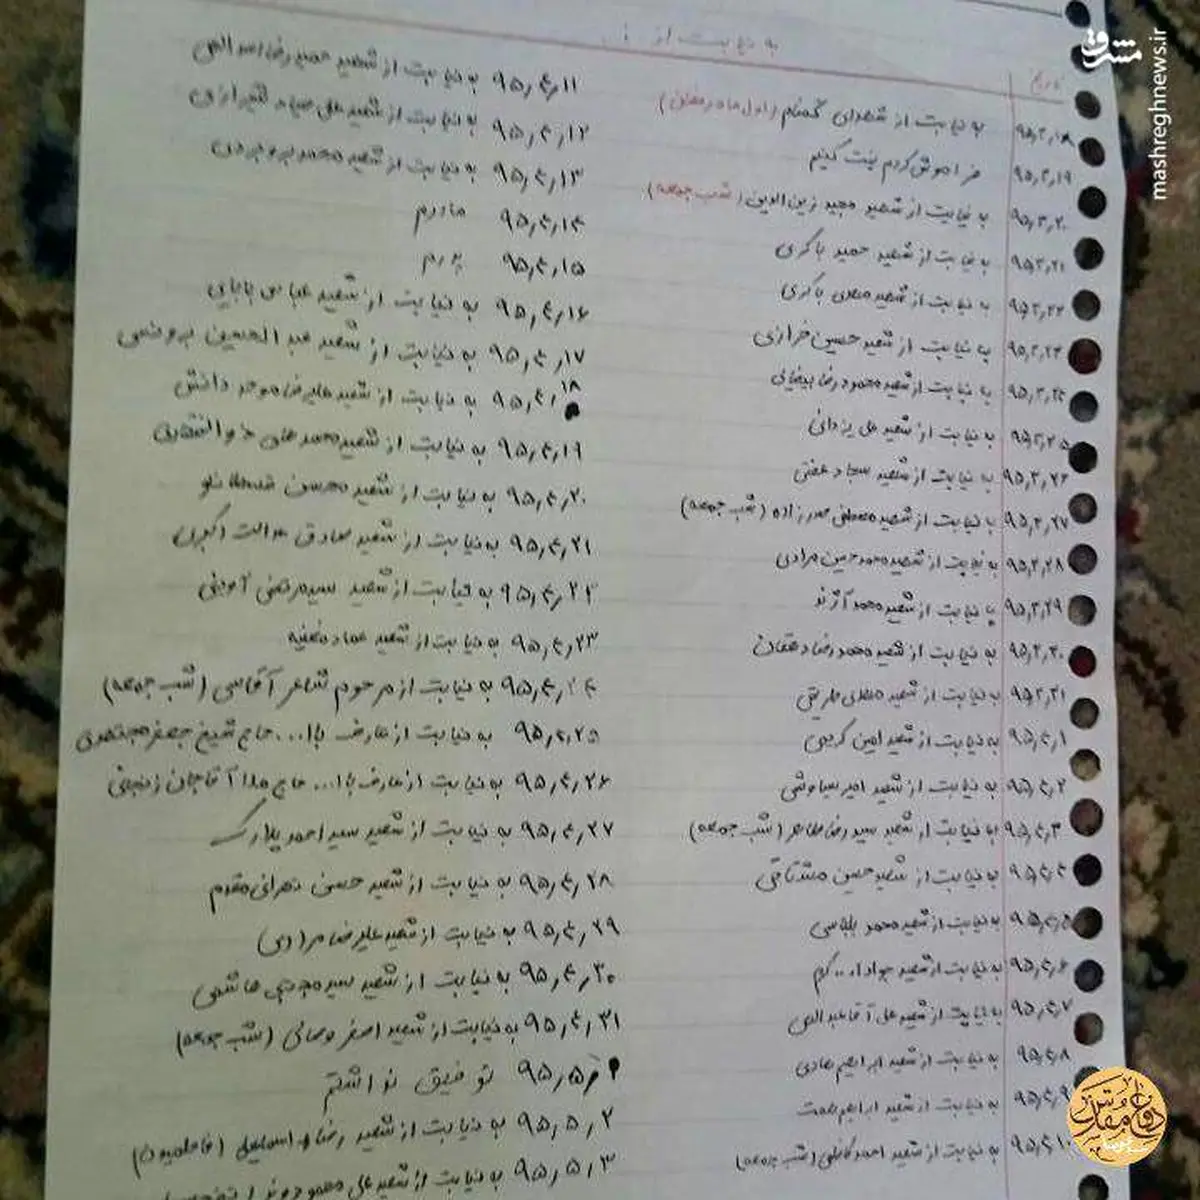 به نیابت از ...
تاریخ
۹۵٫۳٫۱۸ به نیابت از شهدای گمنام (اول ماه رمضان)
۹۵٫۳٫۱۹ فراموش کردم نیت کنیم
۹۵٫۳٫۲۰ به نیابت از شهید مجید زین الدین (شب جمعه)
۹۵٫۳٫۲۱ به نیابت از شهید حمید باکری
۹۵٫۳٫۲۲ به نیابت از شهید مهدی باکری
۹۵٫۳٫۲۳ به نیابت از شهید حسین خرازی
۹۵٫۳٫۲۴ به نیابت از شهید محمودرضا بیضائی
۹۵٫۳٫۲۵ به نیابت از شهید علی یزدانی
۹۵٫۳٫۲۶ به نیابت از شهید سجاد عفتی
۹۵٫۳٫۲۷ به نیابت از شهید مصطفی صدرزاده (شب جمعه)
۹۵٫۳٫۲۸ به نیابت از شهید محمدحسین مرادی
۹۵٫۳٫۲۹ به نیابت از شهید محمد آژند
۹۵٫۳٫۳۰ به نیابت از شهید محمدرضا دهقان
۹۵٫۳٫۳۱ به نیابت از شهید مهدی طریقی
۹۵٫۴٫۱ به نیابت از شهید امین کریمی
۹۵٫۴٫۲ به نیابت از شهید امیر سیاوشی
۹۵٫۴٫۳ به نیابت از شهید سید رضا طاهر (شب جمعه)
۹۵٫۴٫۴ به نیابت از شهید حسین مشتاقی
۹۵٫۴٫۵ به نیابت از شهید محمد بلباسی
۹۵٫۴٫۶ به نیابت از شهید جواد ا... کرم
۹۵٫۴٫۷ به نیابت از شهید علی آقاعبدالهی
۹۵٫۴٫۸ به نیابت از شهید ابراهیم هادی
۹۵٫۴٫۹ به نیابت از شهید ابراهیم همت
۹۵٫۴٫۱۰ به نیابت از شهید احمد کاظمی (شب جمعه)
۹۵٫۴٫۱۱ به نیابت از شهید حمیدرضا اسدالهی
۹۵٫۴٫۱۲ به نیابت از شهید علی صیاد شیرازی
۹۵٫۴٫۱۳ به نیابت از شهید محمد بروجردی
۹۵٫۴٫۱۴ مادرم
۹۵٫۴٫۱۵ پدرم
۹۵٫۴٫۱۶ به نیابت از شهید عباس بابایی
۹۵٫۴٫۱۷ به نیابت از شهید عبدالحسین برونسی
۹۵٫۴٫۱۸ به نیابت از شهید علیرضا موحد دانش
۹۵٫۴٫۱۹ به نیابت از شهید محمدعلی
۹۵٫۴٫۲۰ به نیابت از شهید محسن
۹۵٫۴٫۲۱ به نیابت از شهید صادق عدالت اکبری
۹۵٫۴٫۲۲ به نیابت از شهید سیدمرتضی آوینی
۹۵٫۴٫۲۳ به نیابت از شهید عماد مغنیه
۹۵٫۴٫۲۴ به نیابت از مرحوم شاعر آقاسی (شب جمعه)
۹۵٫۴٫۲۵ به نیابت از عارف باا... حاج شیخ جعفر مجتهدی
۹۵٫۴٫۲۶ به نیابت از عارف باا... حاج ملا آقاجان زنجانی
۹۵٫۴٫۲۷ به نیابت از شهید سید احمد پلارک
۹۵٫۴٫۲۸ به نیابت از شهید حسن تهرانی مقدم
۹۵٫۴٫۲۹ به نیابت از شهید علیرضا مرادی
۹۵٫۴٫۳۰ به نیابت از شهید سید مجتبی هاشمی
۹۵٫۴٫۳۱ به نیابت از شهید اصغر وصالی (شب جمعه)
۹۵٫۵٫۱ توفیق نداشتم
۹۵٫۵٫۲ به نیابت از شهید رضا اسماعیلی (فاطمیون)
۹۵٫۵٫۳ به نیابت از شهید علی محمودوند
مشرق
mashreghnews.ir
دفاع مقدس